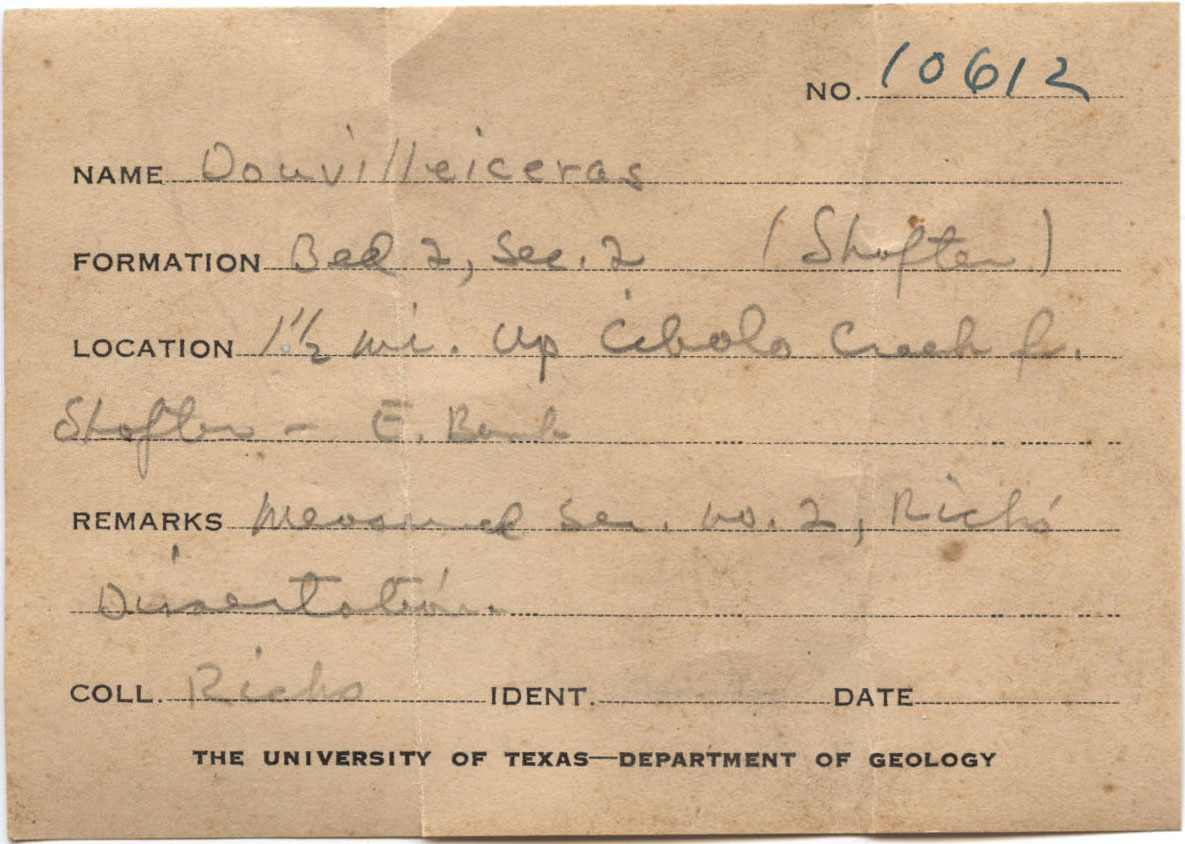 NO. 10612
NAME Douvilleiceras
FORMATION Bed 2, Sec. 2 (Shafter)
LOCATION 1 1/2 mi. up Cibolo Creek fr.
Shafter - E. Bank
REMARKS Measured Sec. no. 2, Rich's
Dissertation.
COLL. IDENT. DATE
THE UNIVERSITY OF TEXAS—DEPARTMENT OF GEOLOGY